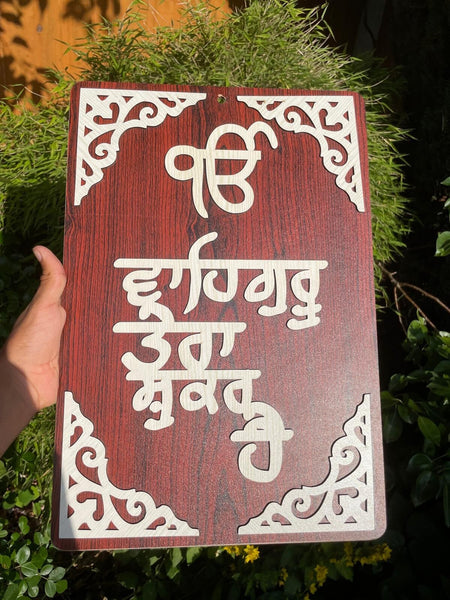 ੴ
ਵਾਹਿਗੁਰੂ
ਤੇਰਾ
ਸ਼ੁਕਰ
ਹੈ